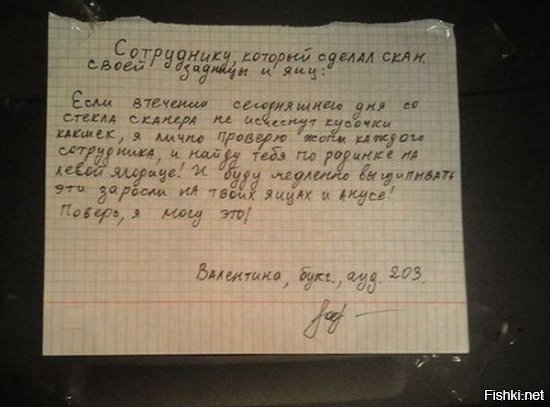 Сотруднику, который сделал скан
своей задницы и яиц:
Если втечении сегодняшнего дня со
стекла сканера не исчеснут кусочки
какшек, я лично проверю жопы каждого
сотрудника, и найду тебя по родинке на
левой ягодице! И буду медленно выщипывать
эти заросли на твоих яицах и анусе!
Поверь, я могу это!
Валентина, бухг., ауд. 203.
Fishki.net